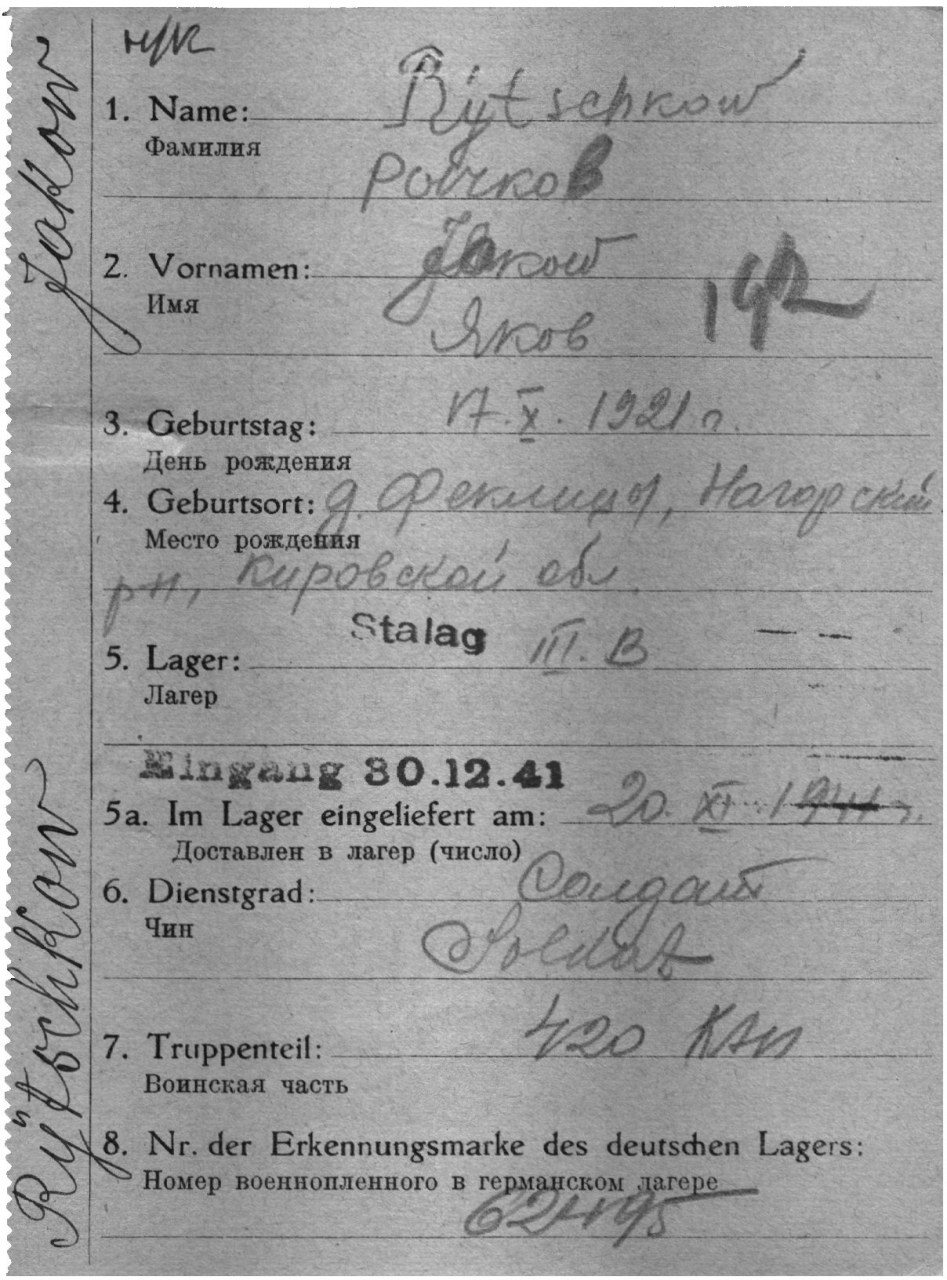 н/к
1. Name: Rÿtschkow
Фамилия
Рычков
2. Vornamen: Jakow
Имя
Яков
192
3. Geburtstag: 17.X.1921 г.
День рождения
4. Geburtsort: д. Феклицы, Нагорский
Место рождения
рн, Кировской обл
Stalag III.B
5. Lager:
Лагер
Eingang 30.12.41
5a. Im Lager eingeliefert am: 20. XI. 1941 г.
Доставлен в лагер (число)
6. Dienstgrad: Солдат
Чин
Soldat
7. Truppenteil: 420 КАП
Воинская часть
8. Nr. der Erkennungsmarke des deutschen Lagers:
Номер военнопленного в германском лагере
Rÿtschkow Jakow